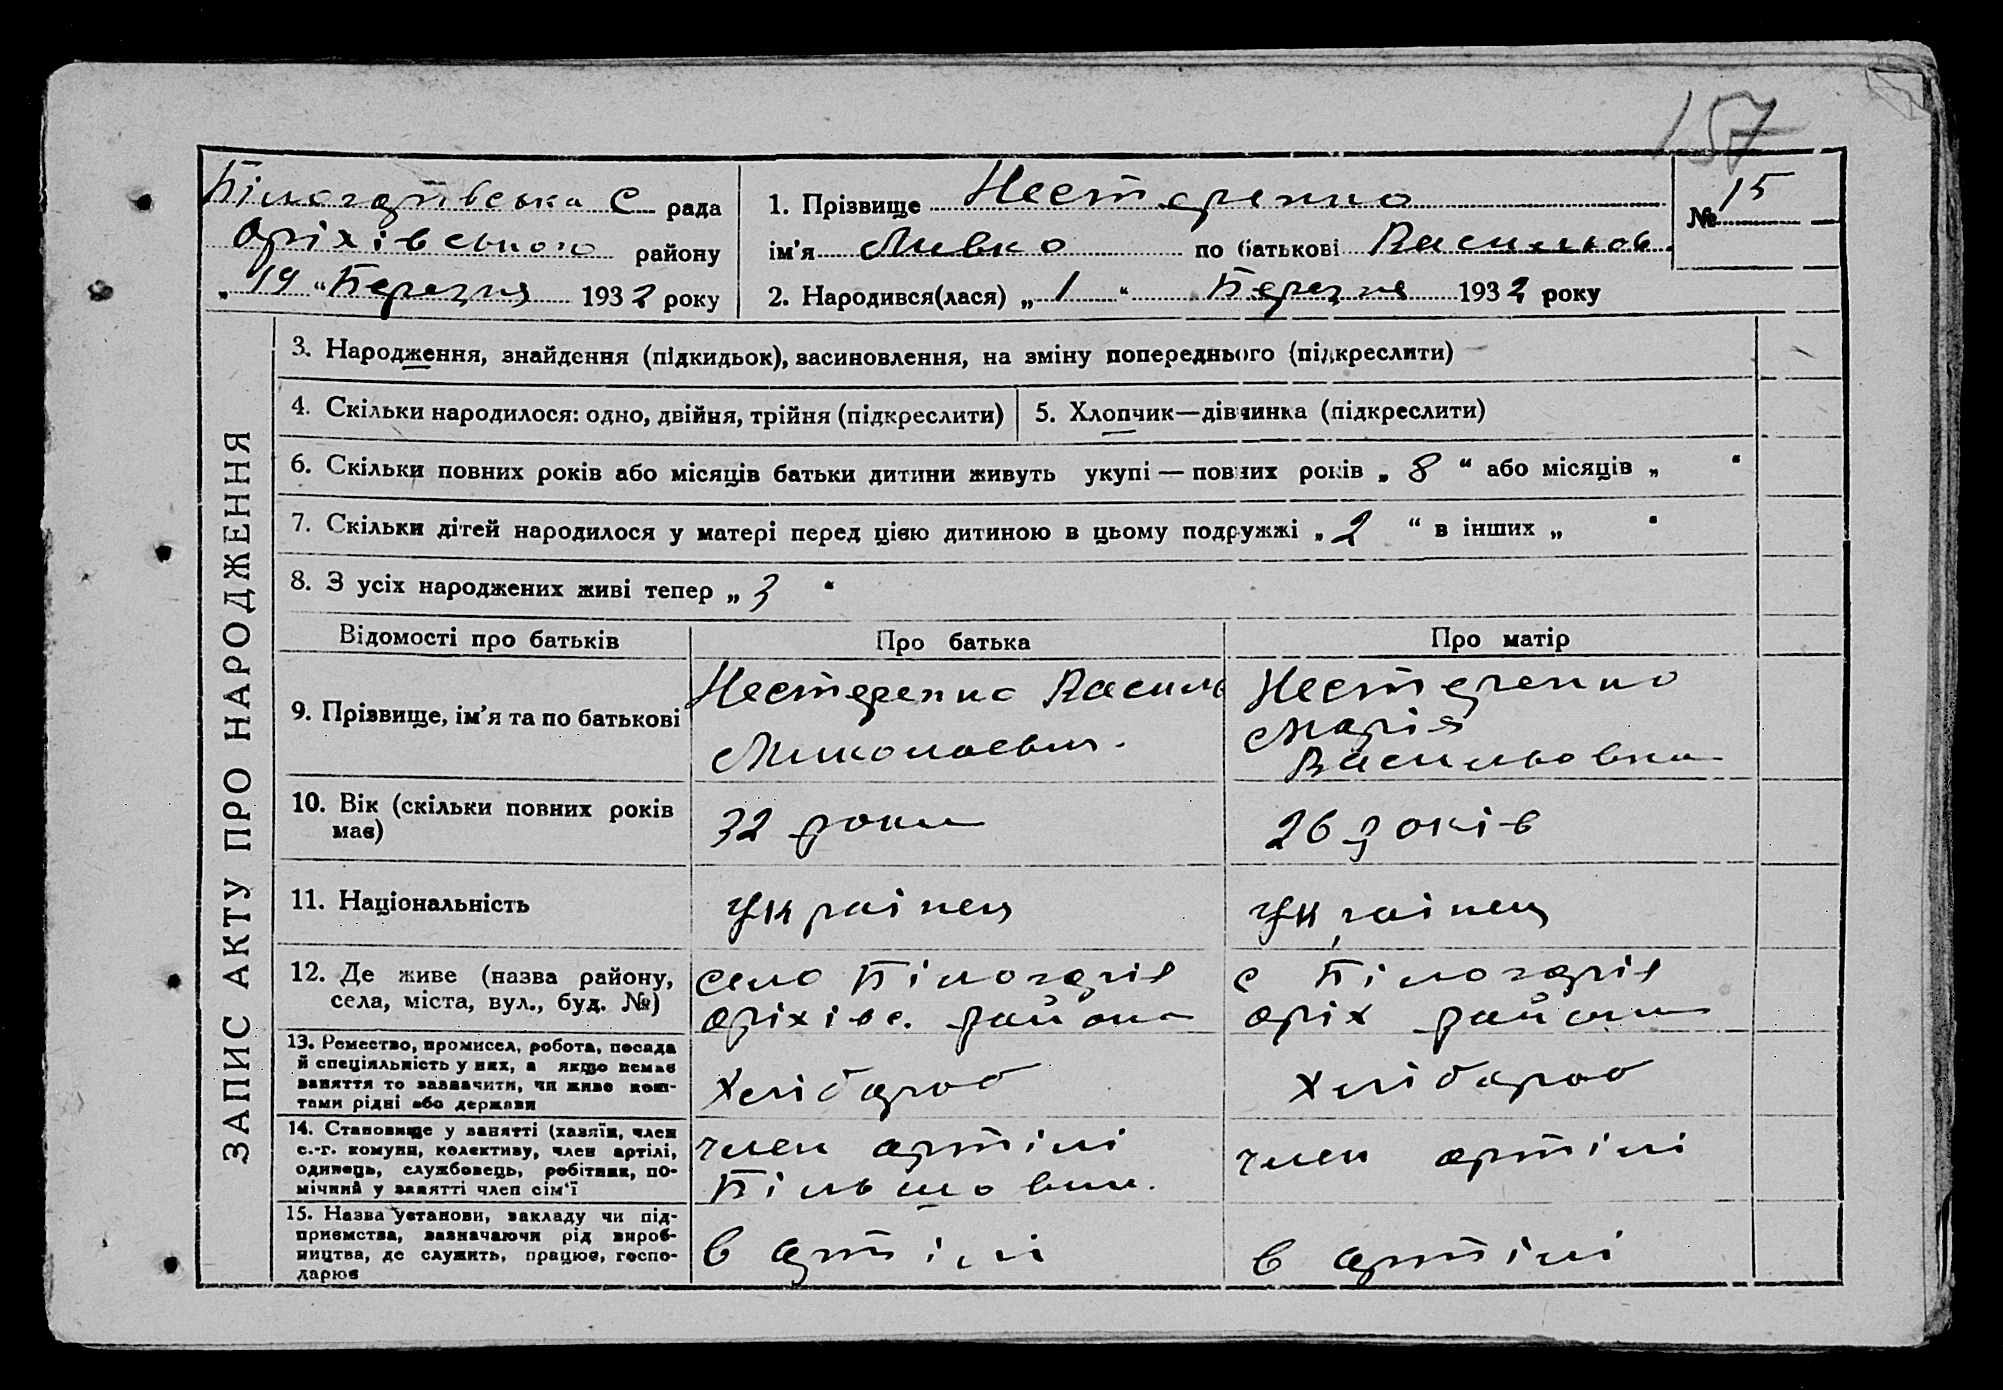 157
Білогорівська С рада
Оріхівського району
„ 19 “ Березня 1932 року
1. Прізвище Нестеренко
ім'я Мивко по батькові Васильов.
2. Народився(лася) „ 1 “ Березня 1932 року
№ 15
ЗАПИС АКТУ ПРО НАРОДЖЕННЯ
3. Народження, знайдення (підкидьок), васиновлення, на зміну попереднього (підкреслити)
4. Скільки народилося: одно, двійня, трійня (підкреслити)
5. Хлопчик—дівчинка (підкреслити)
6. Скільки повних років або місяців батьки дитини живуть укупі — повних років „ 8 “ або місяців „ “
7. Скільки дітей народилося у матері перед цією дитиною в цьому подружжі „ 2 “ в інших „ “
8. З усіх народжених живі тепер „ 3 “
Відомості про батьків
Про батька
Про матір
9. Прізвище, ім'я та по батькові
Нестеренко Василь
Миколаевич.
Нестеренко
Марія
Васильовна
10. Вік (скільки повних років
має)
32 роки
26 років
11. Національність
Украінец
Украінец
12. Де живе (назва району,
села, міста, вул., буд. №)
село Білогоріє
Оріхівс. району
с Білогоріє
Оріх району
13. Ремество, промисел, робота, посада
й спеціяльність у них, а якщо немає
заняття то зазначити, чи живе кош-
тами рідні або держави
Хлібороб
Хлібороб
14. Становище у занятті (хазяїн, член
с.-г. комуни, колективу, член артілі,
одинець, службовець, робітник, по-
мічний у занятті член сім'ї
член артілі
Більшовик.
член артілі
15. Назва установи, закладу чи під-
приємства, зазначаючи рід вироб-
ництва, де служить, працює, госпо-
дарює
в артілі
в артілі